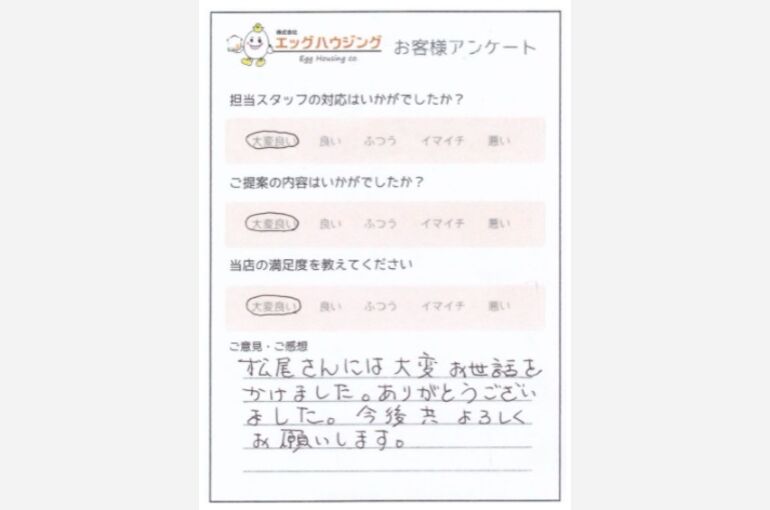 株式会社
エッグハウジング
Egg Housing co
お客様アンケート
担当スタッフの対応はいかがでしたか？
大変良い 良い ふつう イマイチ 悪い
ご提案の内容はいかがでしたか？
大変良い 良い ふつう イマイチ 悪い
当店の満足度を教えてください
大変良い 良い ふつう イマイチ 悪い
ご意見・ご感想
松尾さんには大変お世話を
かけました。ありがとうござい
ました。今後共よろしく
お願いします。